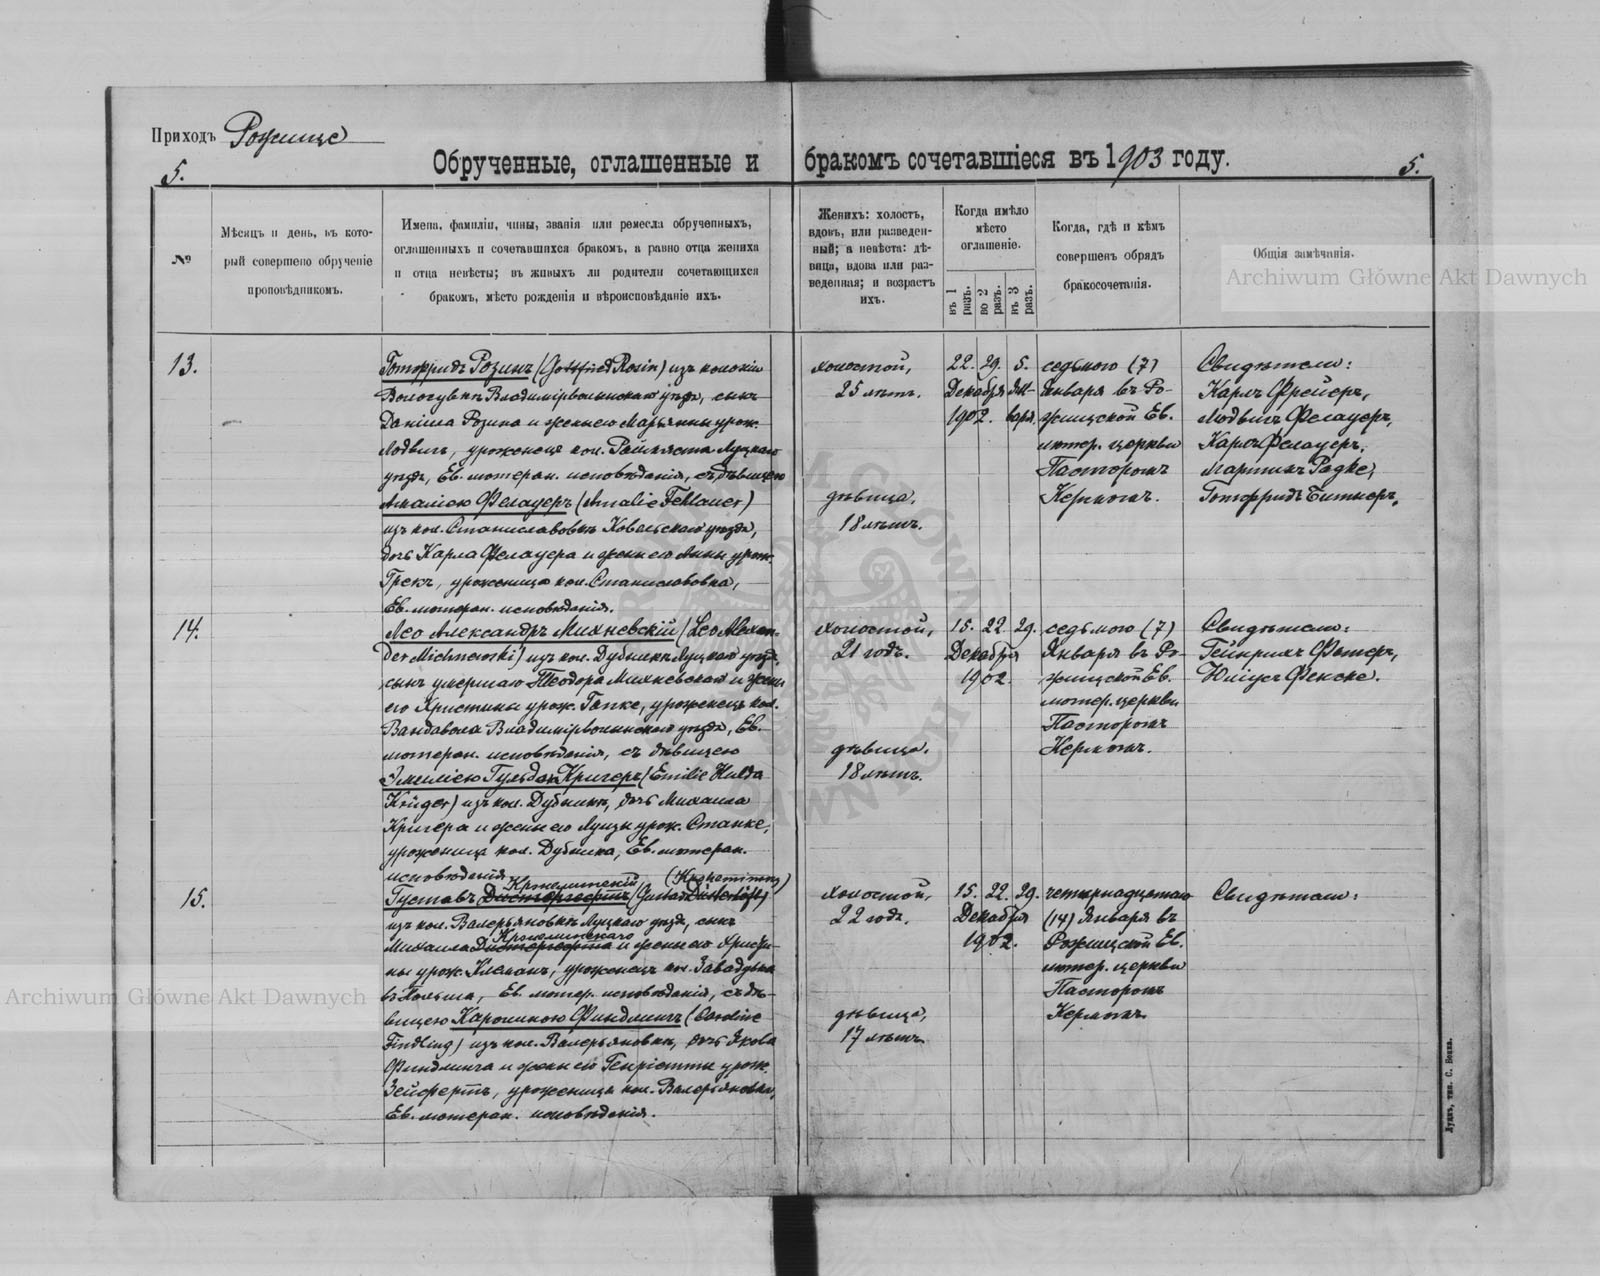 Приходъ Рожище
Обрученные, оглашенные и бракомъ сочетавшіеся въ 1903 году.
5.
5.
№
Мѣсяцъ и день, въ кото-
рый совершено обрученіе
проповѣдникомъ.
Имена, фамиліи, чины, званія или ремесла обрученныхъ,
оглашенныхъ и сочетавшихся бракомъ, а равно отца жениха
и отца невѣсты; въ живыхъ ли родители сочетающихся
бракомъ, мѣсто рожденія и вѣроисповѣданіе ихъ.
Женихъ: холостъ,
вдовъ, или разведен-
ный; а невѣста: дѣ-
вица, вдова или раз-
веденная; и возрастъ
ихъ.
Когда имѣло
мѣсто
оглашеніе.
въ 1 разъ.
во 2 разъ.
въ 3 разъ.
Когда, гдѣ и кѣмъ
совершенъ обрядъ
бракосочетанія.
Общія замѣчанія.
13.
Готфридъ Розинъ (Gottfried Rosin) изъ колоніи
Владимірволынскаго уѣзда, сынъ
Даніила Розина и жены его Марьянны урож.
Людвигъ, уроженецъ кол. Луцкаго
уѣзда, Ев. лютеран. исповѣданія, съ дѣвицею
Амаліею Фелауеръ (Amalie Fehlauer)
изъ кол. Станиславовки Ковельскаго уѣзда,
дочь Карла Фелауера и жены его Анны урож.
Грекъ, уроженица кол. Станиславовка,
Ев. лютеран. исповѣданія.
холостой,
25 лѣтъ.
дѣвица,
18 лѣтъ.
22. 29. 5.
Декабря Ян-
1902. варя.
седьмого (7)
Января въ Ро-
жищской Ев.
лютер. церкви
Пасторомъ
Керномъ.
Свидѣтели:
Карлъ Фрейеръ,
Людвигъ Фелауеръ,
Карлъ Фелауеръ,
Мартинъ Радке,
Готфридъ Битнеръ.
14.
Лео Александръ Михневскій (Leo Alexan-
der Michnewski) изъ кол. Дубники Луцкаго уѣзда,
сынъ умершаго Теодора Михневскаго и жены
его Христины урож. Гапке, уроженецъ кол.
Вандавола Владимірволынскаго уѣзда, Ев.
лютеран. исповѣданія, съ дѣвицею
Эмиліею Гульдою Кригеръ (Emilie Hulda
Krüger) изъ кол. Дубники, дочь Михаила
Кригера и жены его Луизы урож. Станке,
уроженица кол. Дубника, Ев. лютеран.
исповѣданія.
холостой,
21 годъ.
дѣвица,
18 лѣтъ.
15. 22. 29.
Декабря
1902.
седьмого (7)
Января въ Ро-
жищской Ев.
лютер. церкви
Пасторомъ
Керномъ.
Свидѣтели:
Гейнрихъ Фетеръ,
Юліусъ Фенске.
15.
Густавъ (Gustav
изъ кол. Валерьяновки Луцкаго уѣзда, сынъ
Михаила и жены его Христи-
ны урож. Клеманъ, уроженецъ кол.
въ Польша, Ев. лютер. исповѣданія, съ дѣ-
вицею Каролиною Финдлингъ (Caroline
Findling) изъ кол. Валерьяновки, дочь Якова
Финдлинга и жены его Генріэтты урож.
Зейфертъ, уроженица кол. Валерьяновки,
Ев. лютеран. исповѣданія.
холостой,
22 годъ.
дѣвица,
17 лѣтъ.
15. 22. 29.
Декабря
1902.
четырнадцатаго
(14) Января въ
Рожищской Ев.
лютер. церкви
Пасторомъ
Керномъ.
Свидѣтели:
Луцкъ, тип. С. Бокка.
Archiwum Główne Akt Dawnych
Archiwum Główne Akt Dawnych